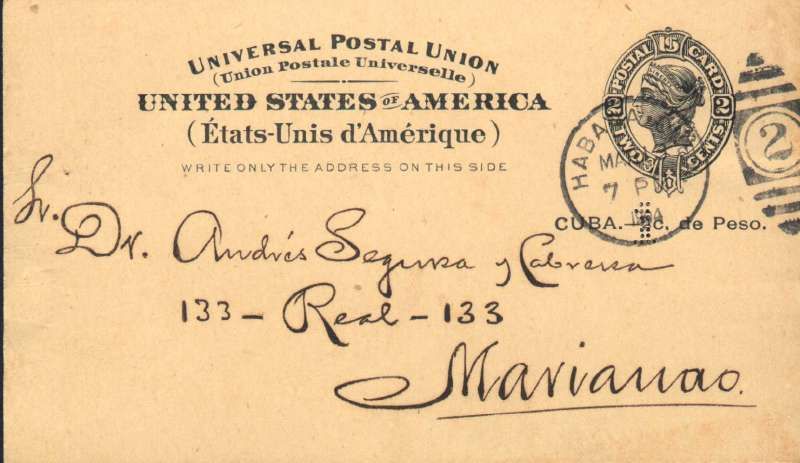 UNIVERSAL POSTAL UNION
(Union Postale Universelle)
UNITED STATES OF AMERICA
(États-Unis d'Amérique)
WRITE ONLY THE ADDRESS ON THIS SIDE
POSTAL 15 CARD
2 2
TWO CENTS
HABA
7 P
2
CUBA. c. de Peso.
Sr.
Dr. Andrés Segura y Cabrera
133 - Real - 133
Marianao.